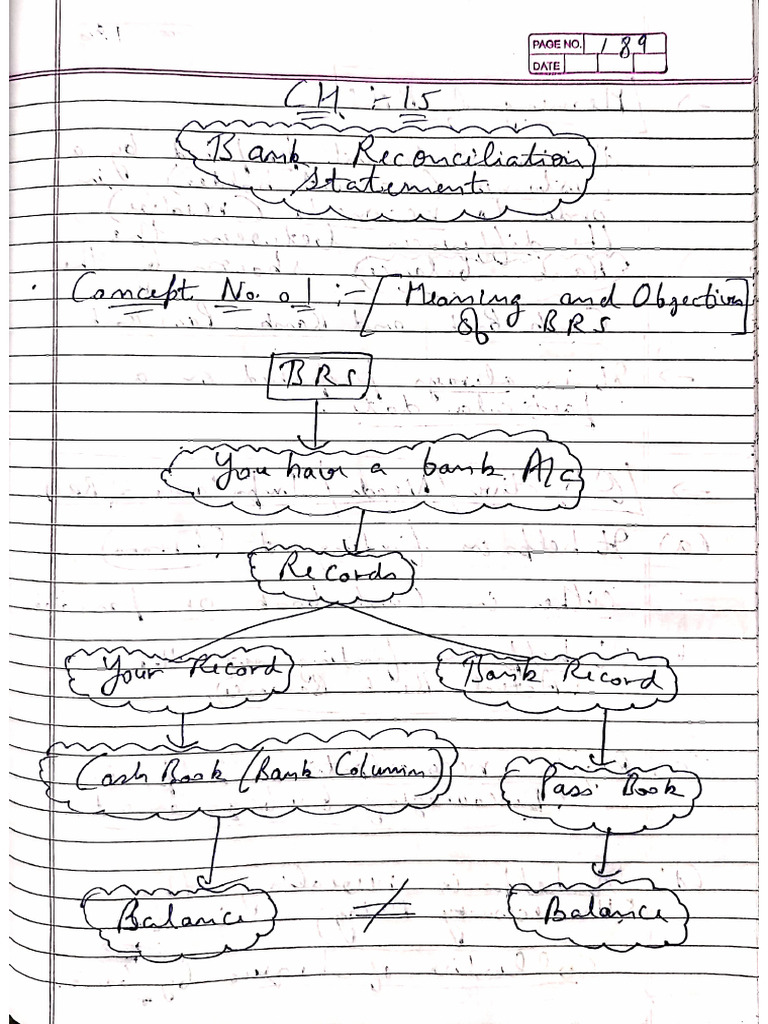 PAGE NO. 189
DATE
CH :- 15
Bank Reconciliation
Statement
Concept No. 01 :- [Meaning and Objectives
of BRS]
BRS
You have a bank A/c
Records
Your Record
Bank Record
Cash Book (Bank Column)
Pass Book
Balance ≠ Balance